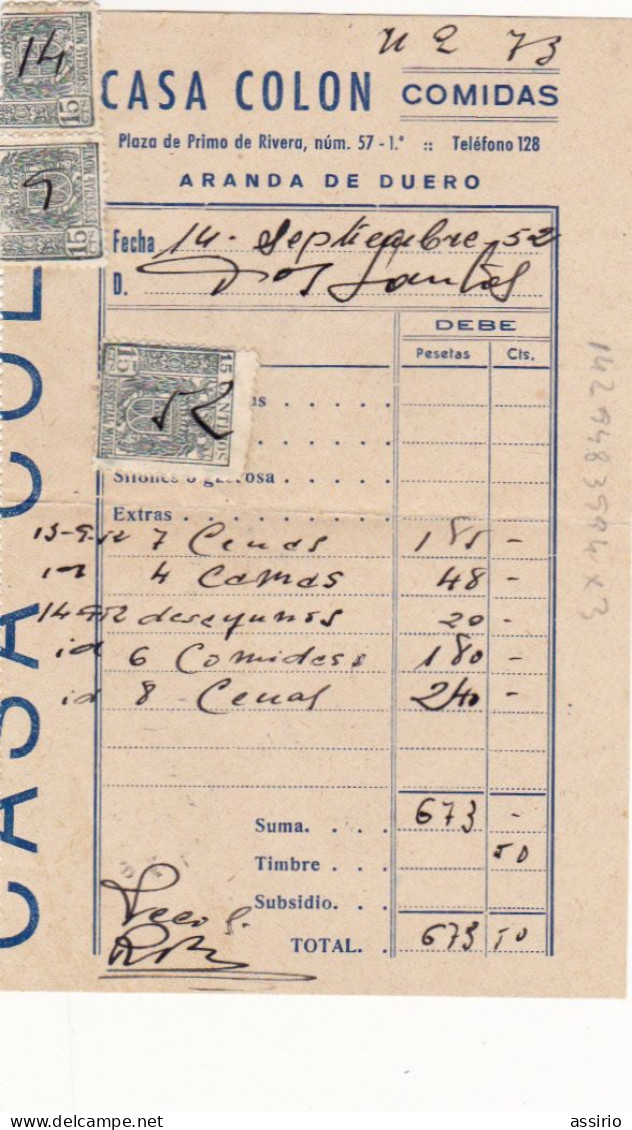 N 2 73
CASA COLON COMIDAS
Plaza de Primo de Rivera, núm. 57 - 1.° :: Teléfono 128
ARANDA DE DUERO
Fecha 14 - Septiembre 52
D. Dos Santos
DEBE
Pesetas Cts.
Sifones o gaseosa
Extras
13-9-52 7 Cenas 185 -
4 Camas 48 -
14 9 52 desayunos 20 -
id 6 Comidas 180 -
id 8 Cenas 240 -
Suma. 673 -
Timbre 50
Subsidio.
TOTAL. 673 50
CASA COL
14
15
9
15
15 CENTIMOS
52
15